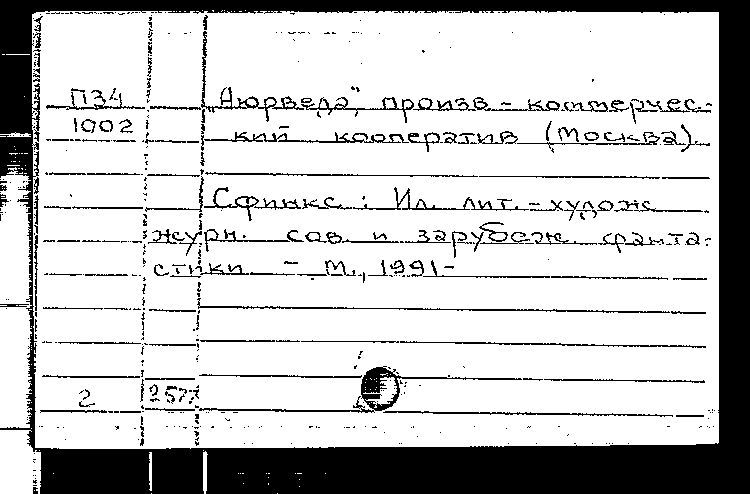 П34 „Аюрведа", произв - коммерчес-
1002 кий кооператив (Москва).
Сфинкс : Ил. лит. - худож
журн. сов. и зарубеж. фанта-
стики. - М., 1991-
2 2577